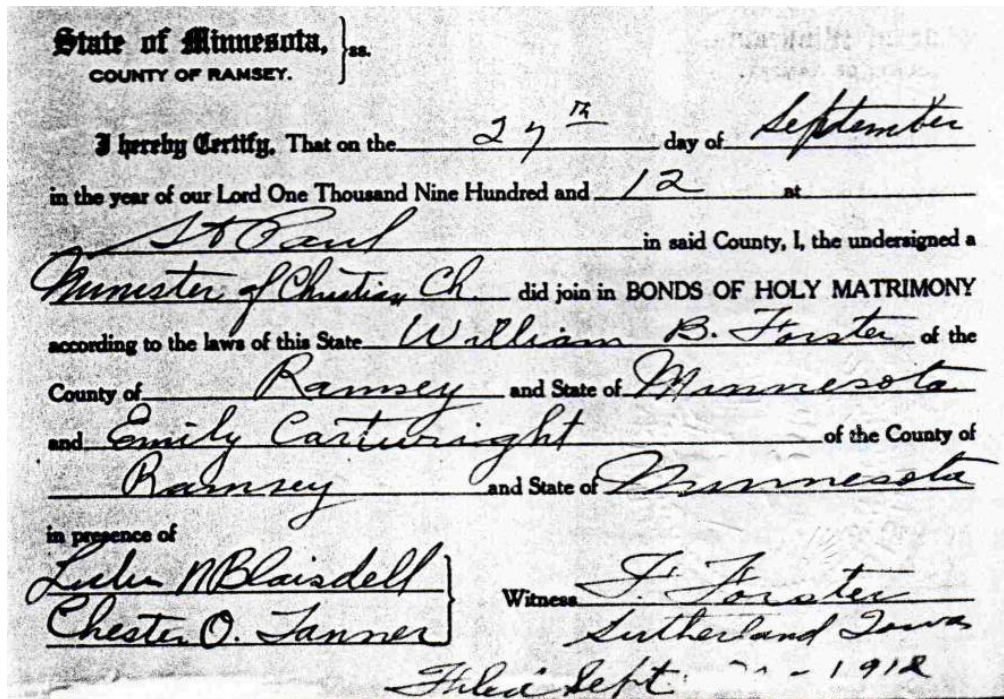 State of Minnesota, } ss.
COUNTY OF RAMSEY.
I hereby Certify, That on the 27th day of September
in the year of our Lord One Thousand Nine Hundred and 12 at
St Paul in said County, I, the undersigned a
Minister of Christian Ch. did join in BONDS OF HOLY MATRIMONY
according to the laws of this State William B. Forster of the
County of Ramsey and State of Minnesota
and Emily Cartwright of the County of
Ramsey and State of Minnesota
in presence of
N Blaisdell
Chester O. Tanner
Witness F. Forster
Sutherland Iowa
Filed Sept - 1912